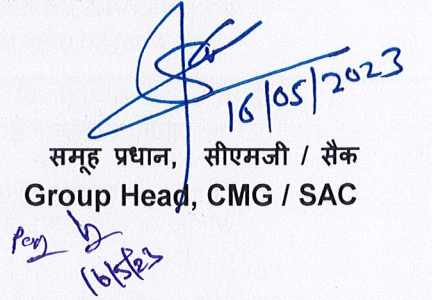 16/05/2023
समूह प्रधान, सीएमजी / सैक
Group Head, CMG / SAC
16/5/23